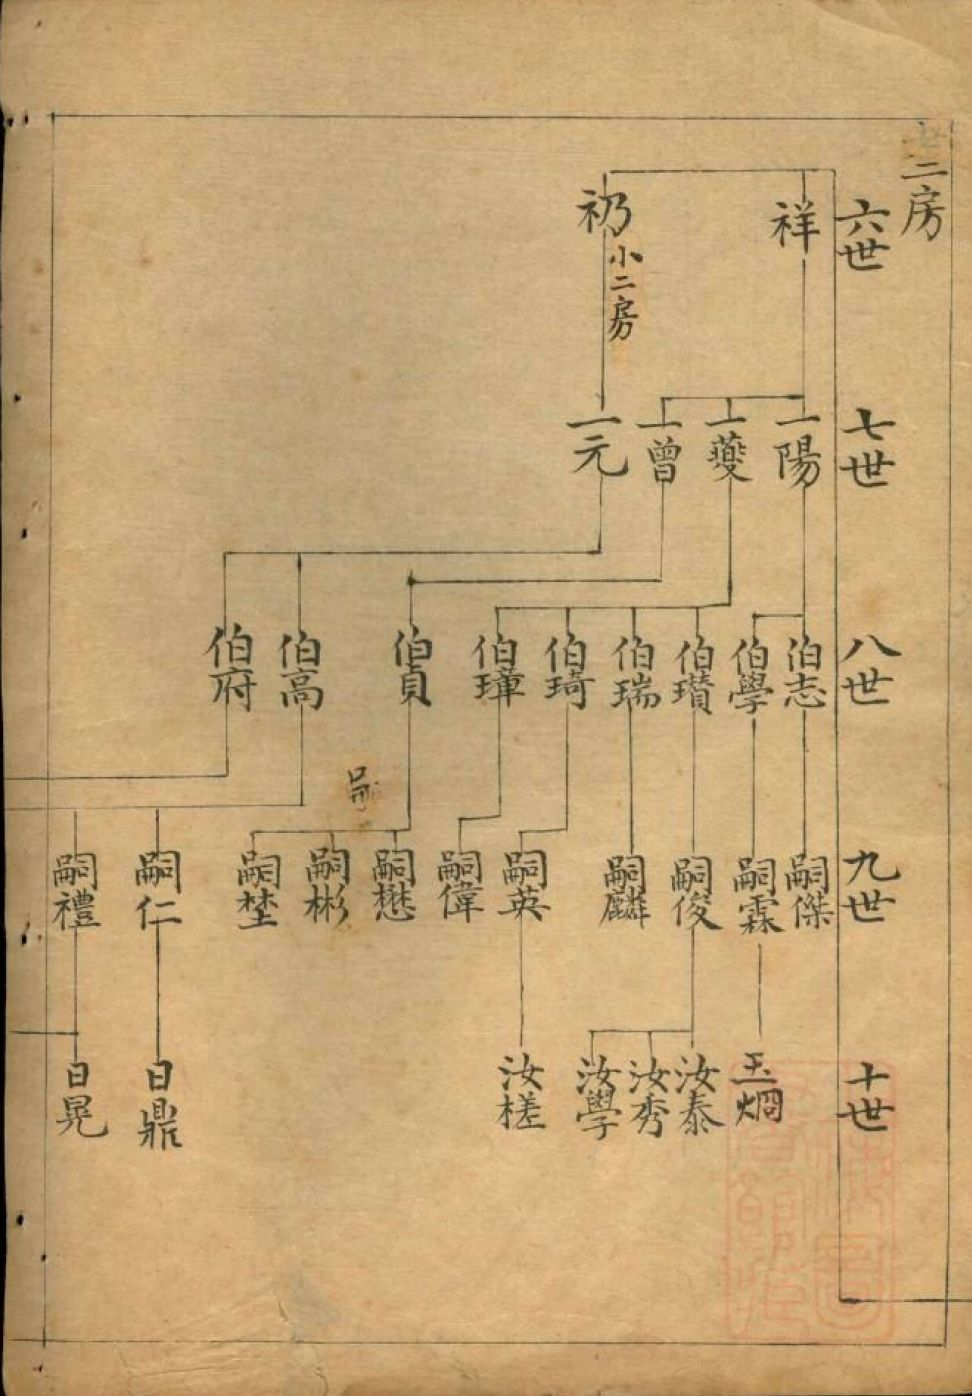 二房
六世
祥
礽
小二房
七世
一陽
一夔
一曾
一元
八世
伯志
伯學
伯瓚
伯瑞
伯琦
伯璋
伯貞
伯高
伯府
嗣
九世
嗣傑
嗣霖
嗣俊
嗣麟
嗣英
嗣偉
嗣懋
嗣彬
嗣埜
嗣仁
嗣禮
十世
玉烱
汝泰
汝秀
汝學
汝槎
日鼎
日晃